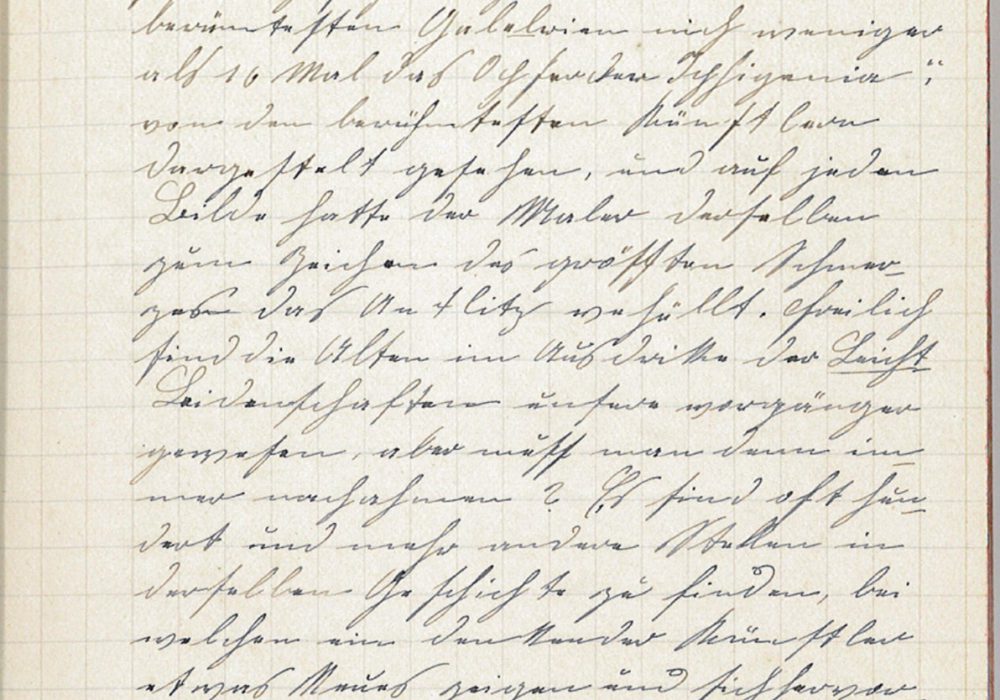 berümtesten Galelrien nich weniger
als 16 Mal das Opfer der Iphigenia ":
von den berühmtesten Künstlern
dargestelt gesehen, und auf jeden
Bilde hatte der Maler derselben
zum Zeichen des grössten Schmer-
zes das Antlitz vehüllt. Freilich
sind die Alten im Ausdrikke der Leicht
Leidenschaften unsere vorgänger
gewesen, aber muss man denn im-
mer nachahmen? Es sind oft hun-
dert und mehr andere Stellen in
derselben Geschichte zu finden, bei
welchen ein denkender Künstler
etwas Neues zeigen und sich hervor